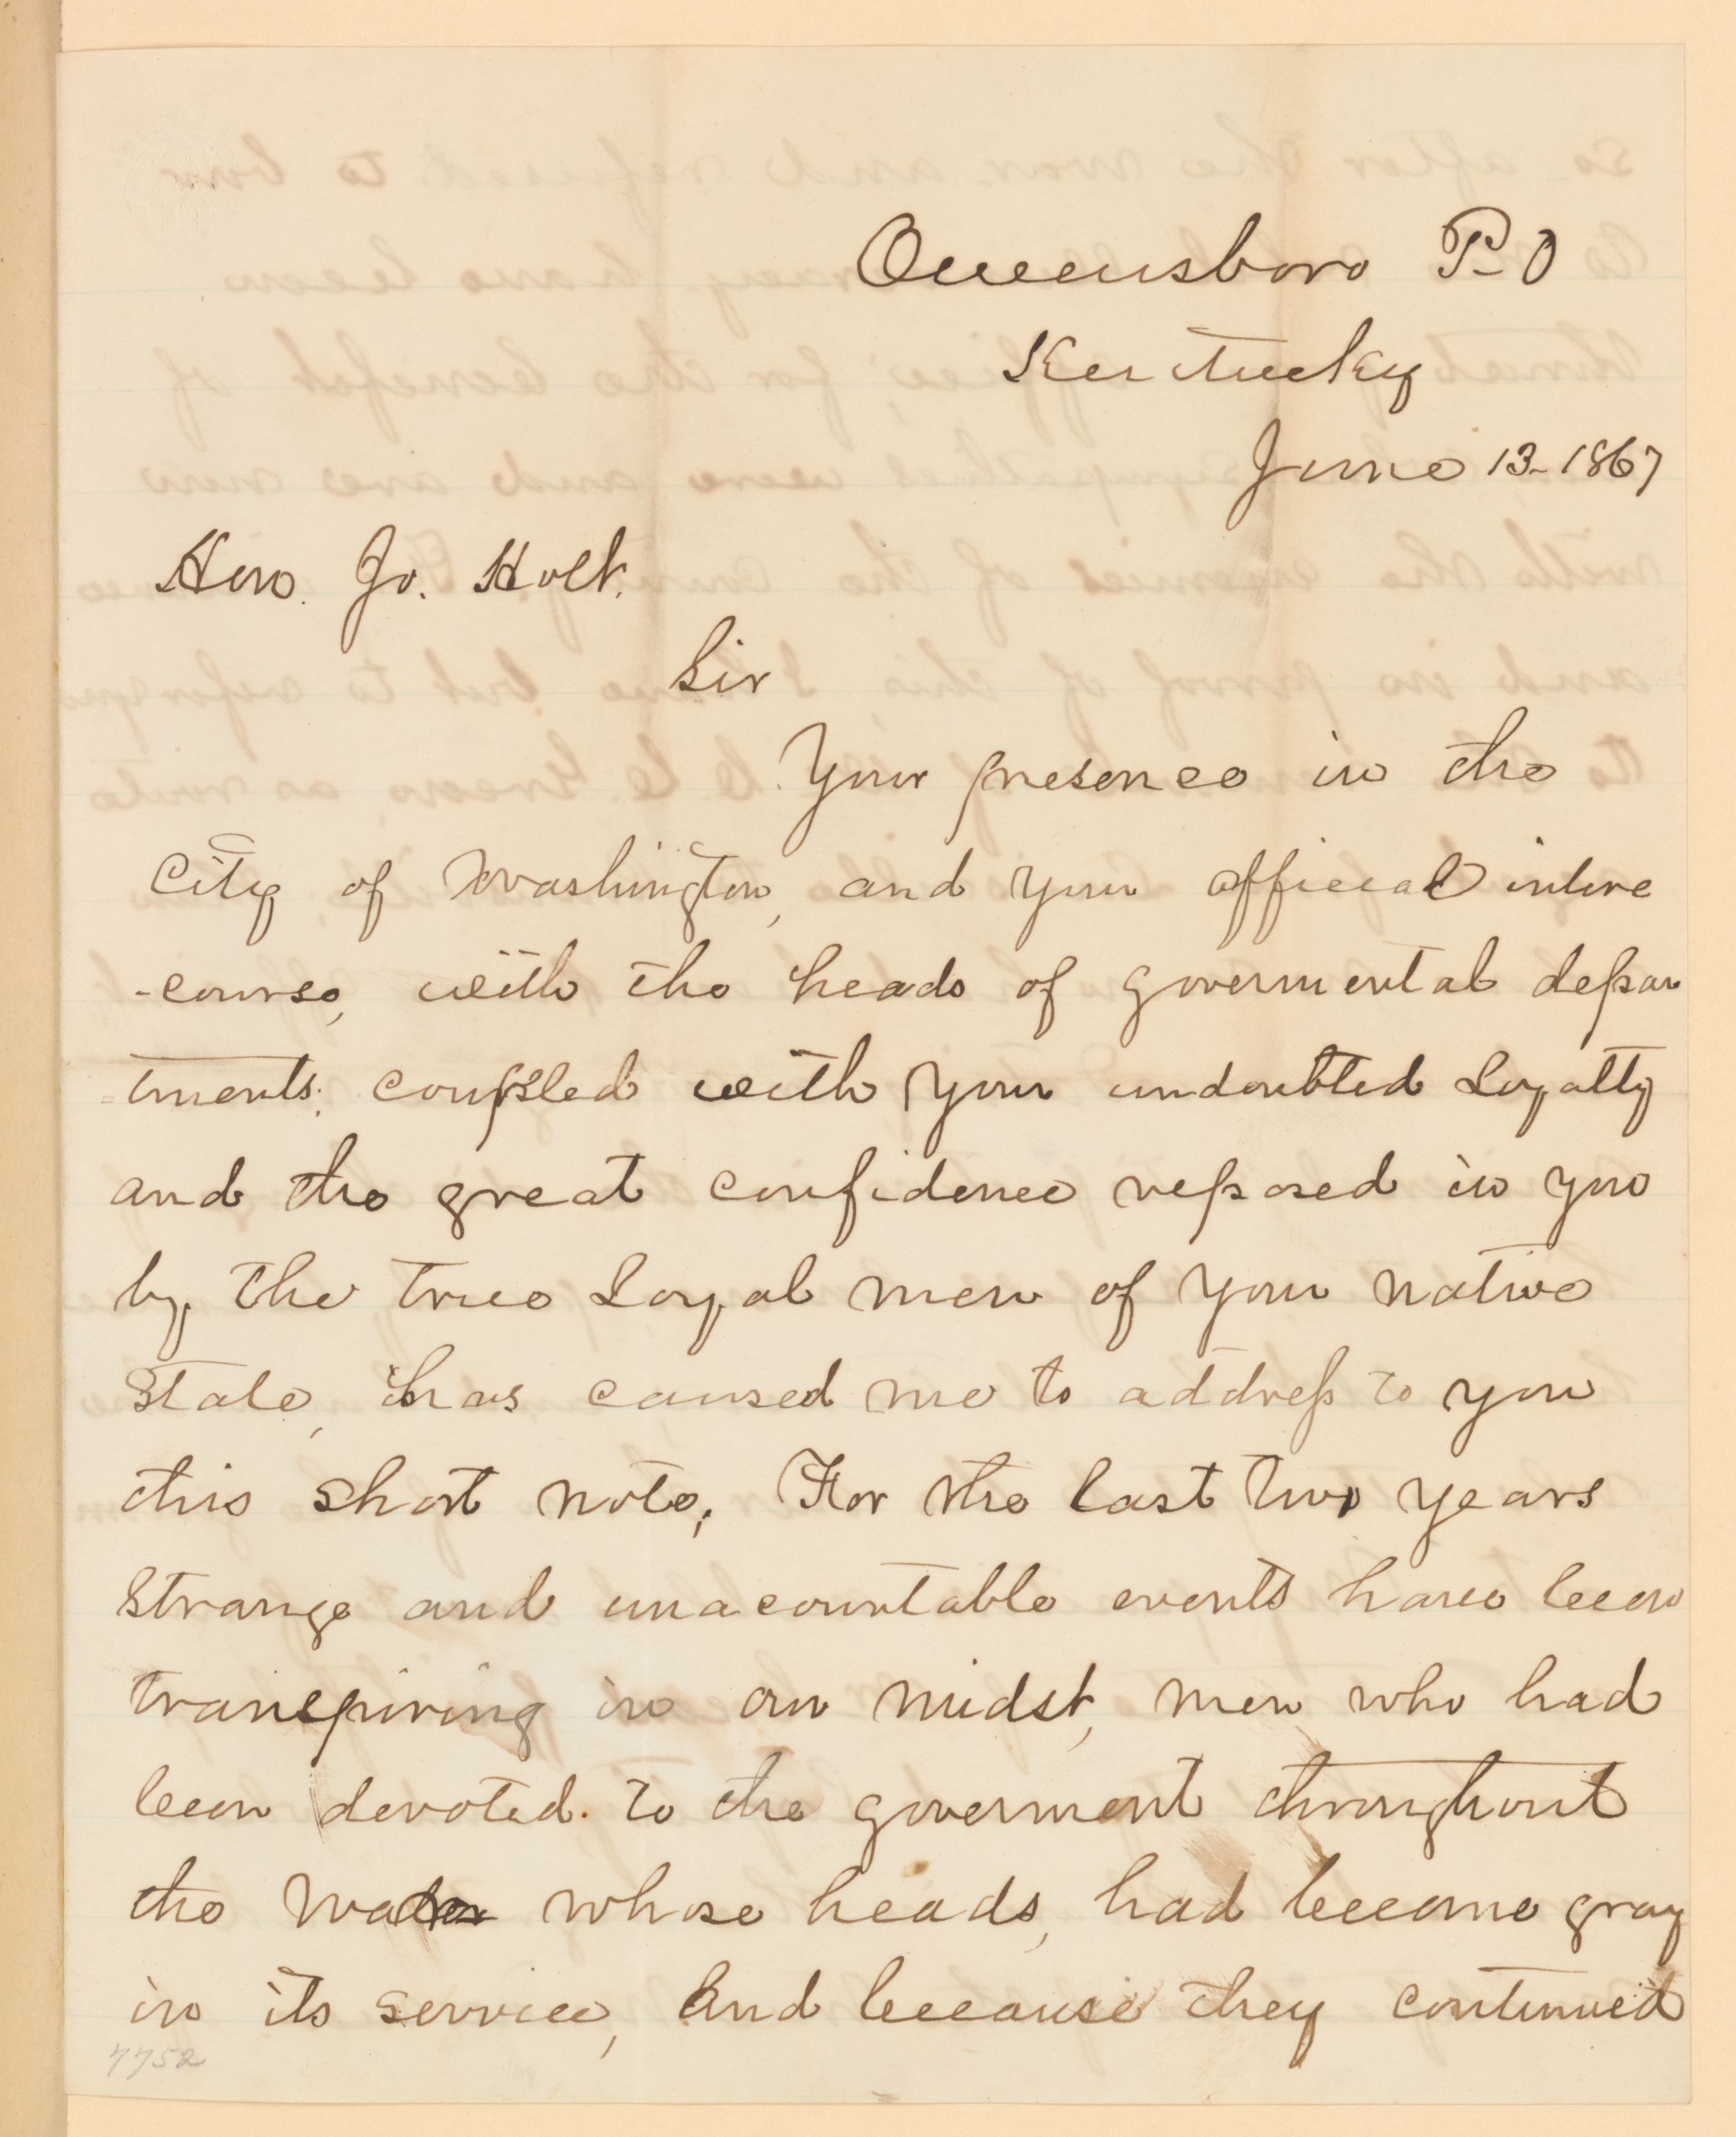 Owensboro P-O
Kentucky
June 13-1867
Hon. Jo. Holt.
Sir
Your presence in the
City of Washington, and your official inter
-course, with the heads of govermental depar
tments, coupled with your undoubted Loyalty
and the great confidence reposed in you
by the true Loyal men of your native
State, has caused me to address to you
this short note, For the last two years
strange and unacountable events have been
transpiring in our midst, men who had
been devoted to the goverment throughout
the whose heads, had become gray
in its service, And because they continued
7752